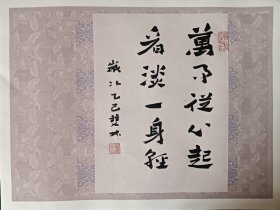 萬事從心起
看淡一身輕
歲次乙巳